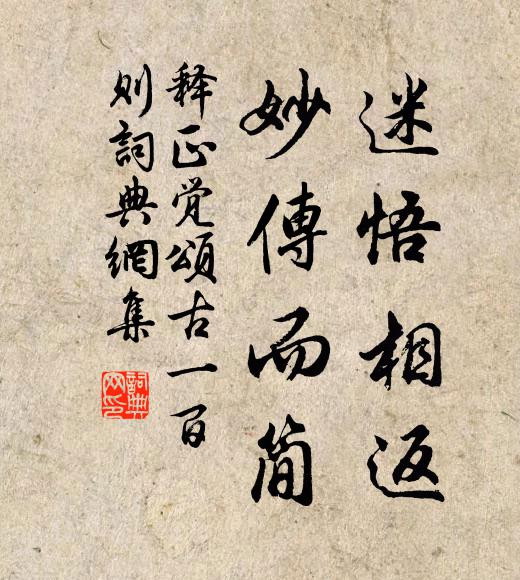 迷悟相返
妙傳而简
释正觉頌古一百
则詞典網集
詞典
网印